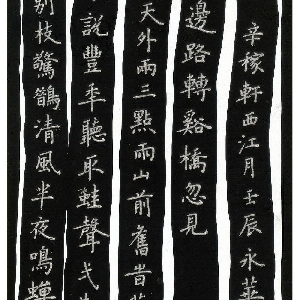 辛稼軒西江月壬辰永華
邊路轉谿橋忽見
天外兩三點雨山前舊旹
說豐秊聽取蛙聲弌
別枝驚鵲清風半夜鳴蟬